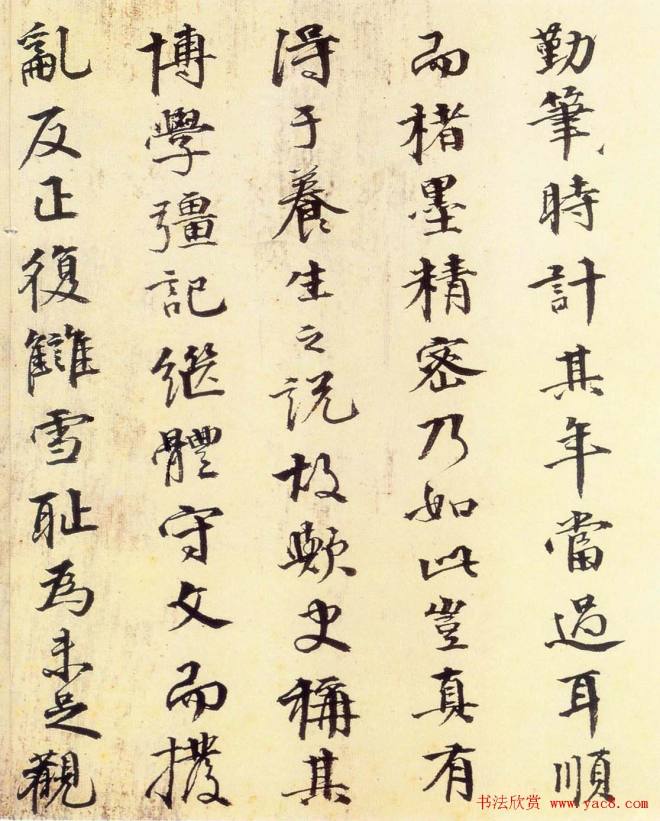 勤筆時計其年當過耳順
而楮墨精密乃如此豈真有
得于養生之説故歟史稱其
博學彊記継體守文而撥
亂反正復讎雪耻為未足觀
书法欣赏 www.yac8.com